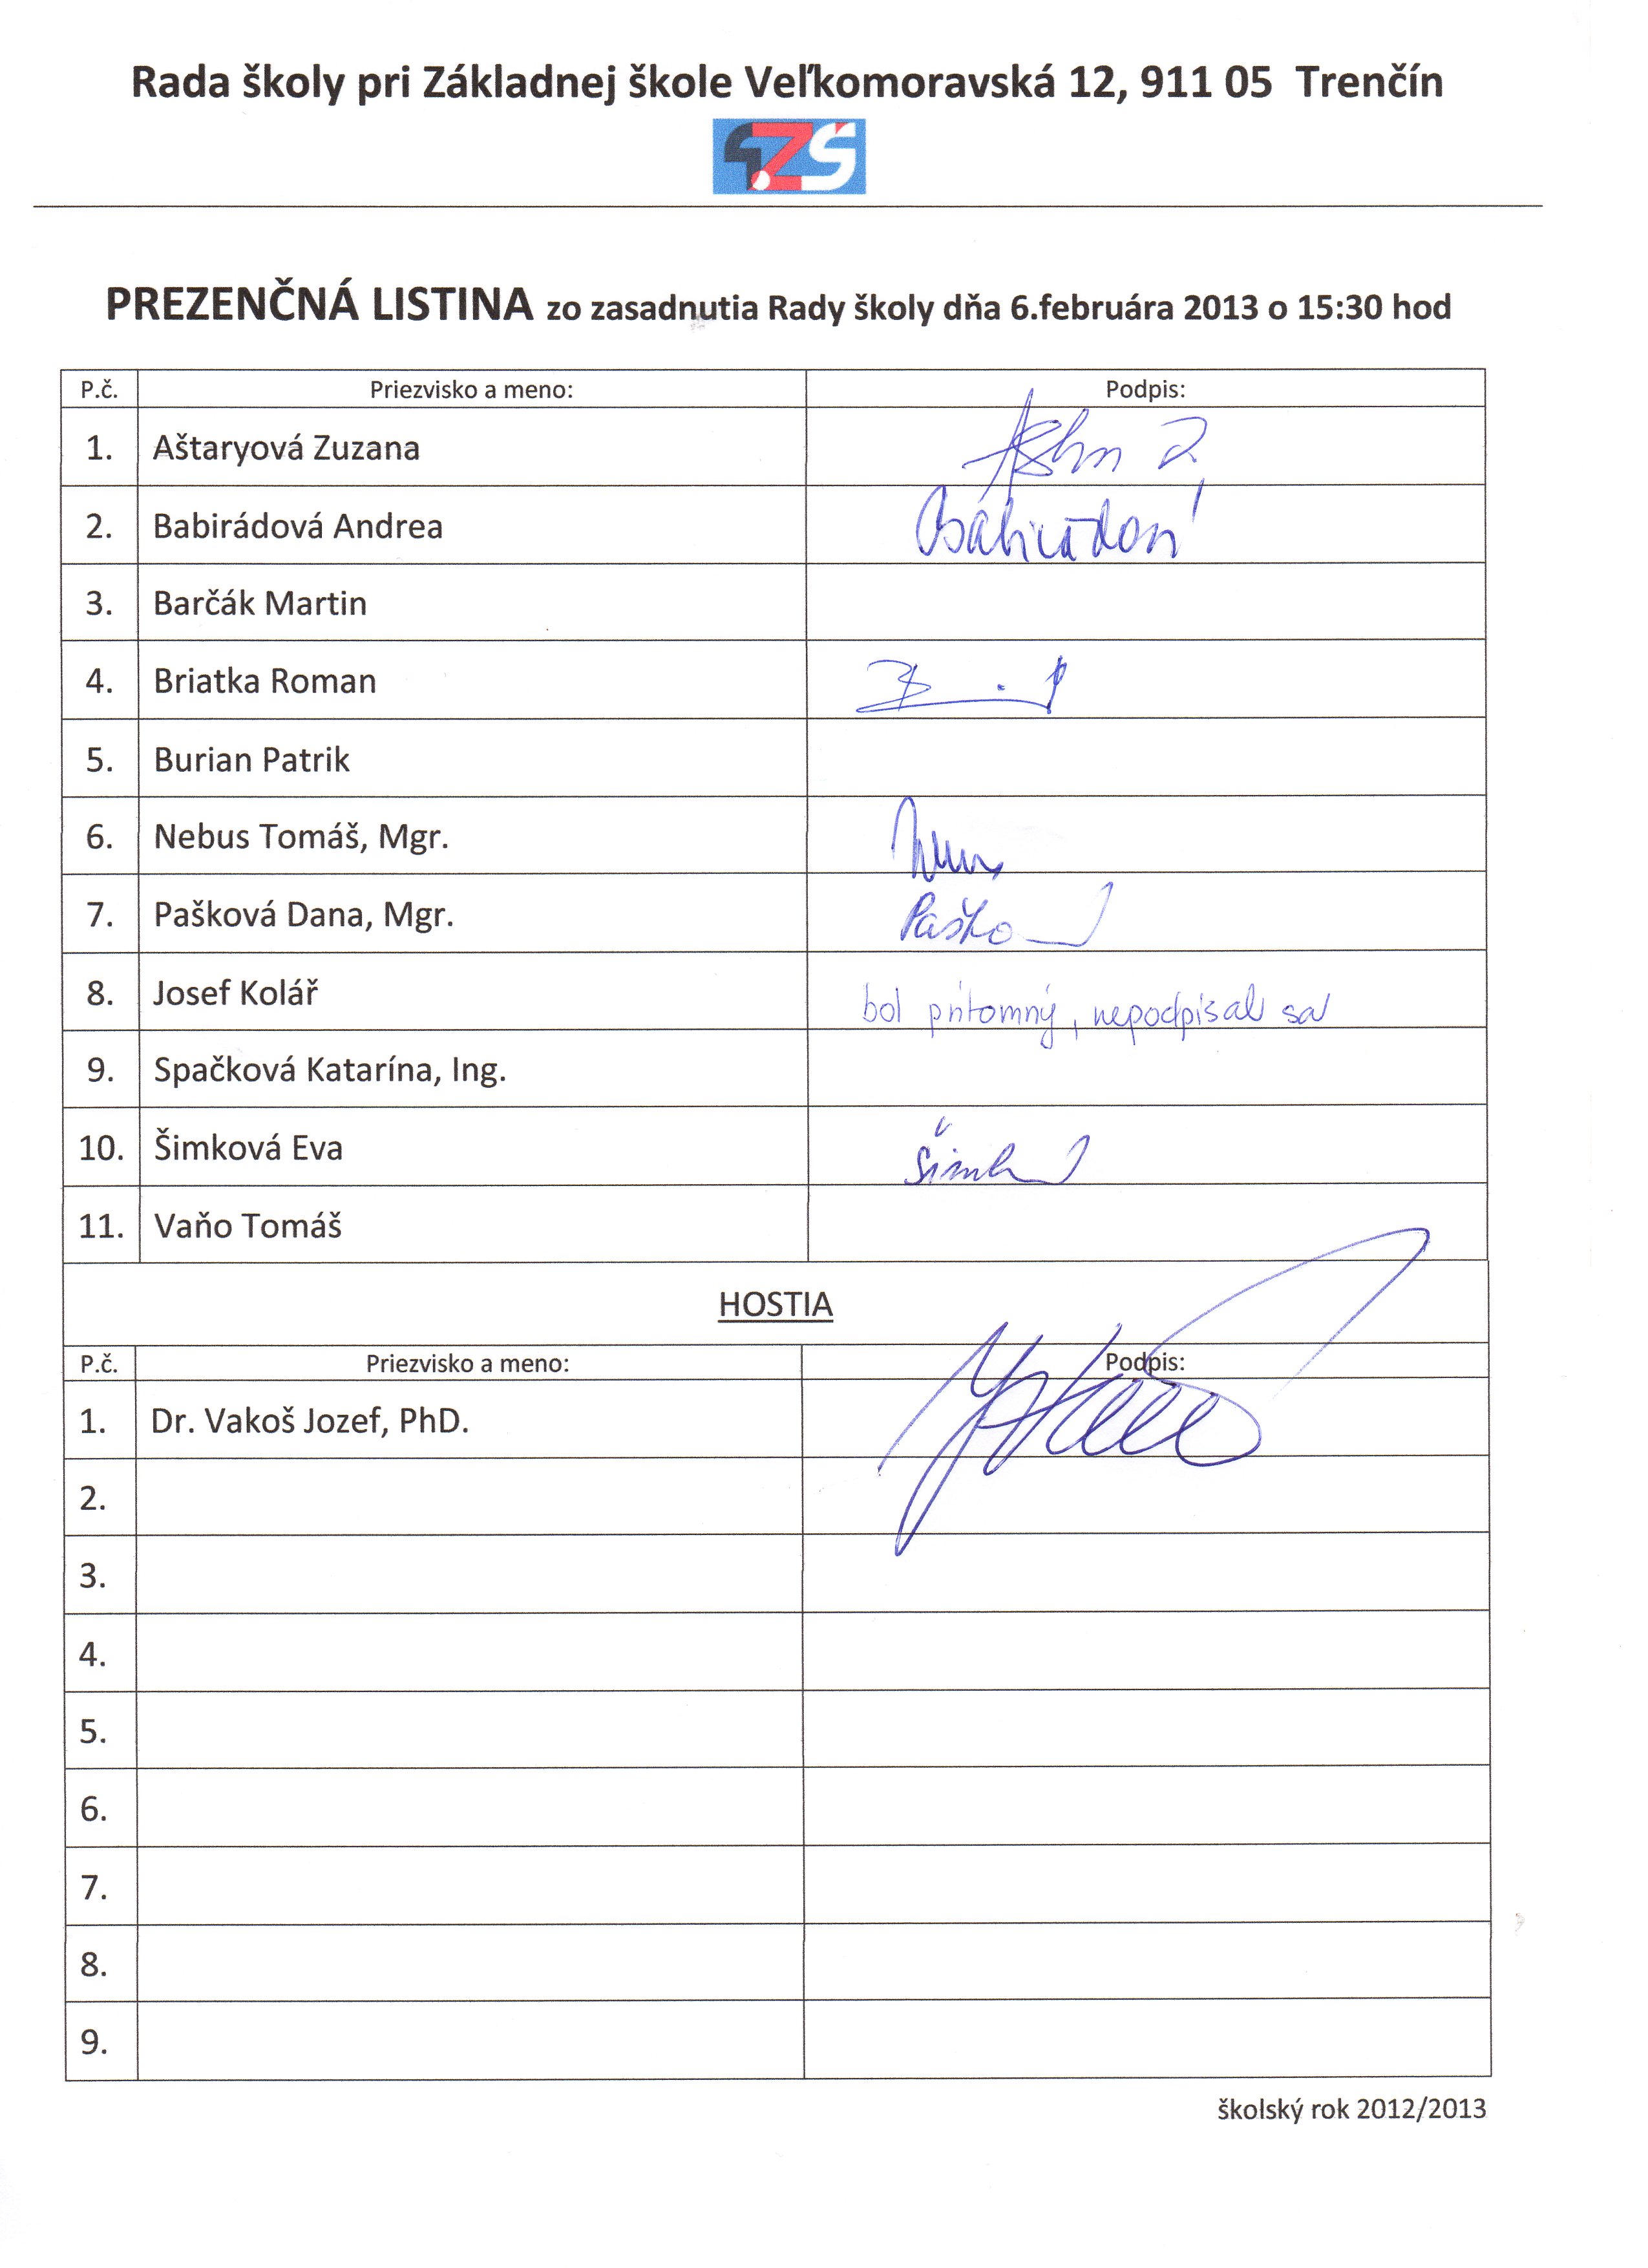 Rada školy pri Základnej škole Veľkomoravská 12, 911 05 Trenčín
ZŠ
PREZENČNÁ LISTINA zo zasadnutia Rady školy dňa 6.februára 2013 o 15:30 hod
P.č. Priezvisko a meno: Podpis:
1. Aštaryová Zuzana
2. Babirádová Andrea
3. Barčák Martin
4. Briatka Roman
5. Burian Patrik
6. Nebus Tomáš, Mgr.
7. Pašková Dana, Mgr.
8. Josef Kolář bol prítomný, nepodpísal sa
9. Spačková Katarína, Ing.
10. Šimková Eva
11. Vaňo Tomáš
HOSTIA
P.č. Priezvisko a meno: Podpis:
1. Dr. Vakoš Jozef, PhD.
2.
3.
4.
5.
6.
7.
8.
9.
školský rok 2012/2013